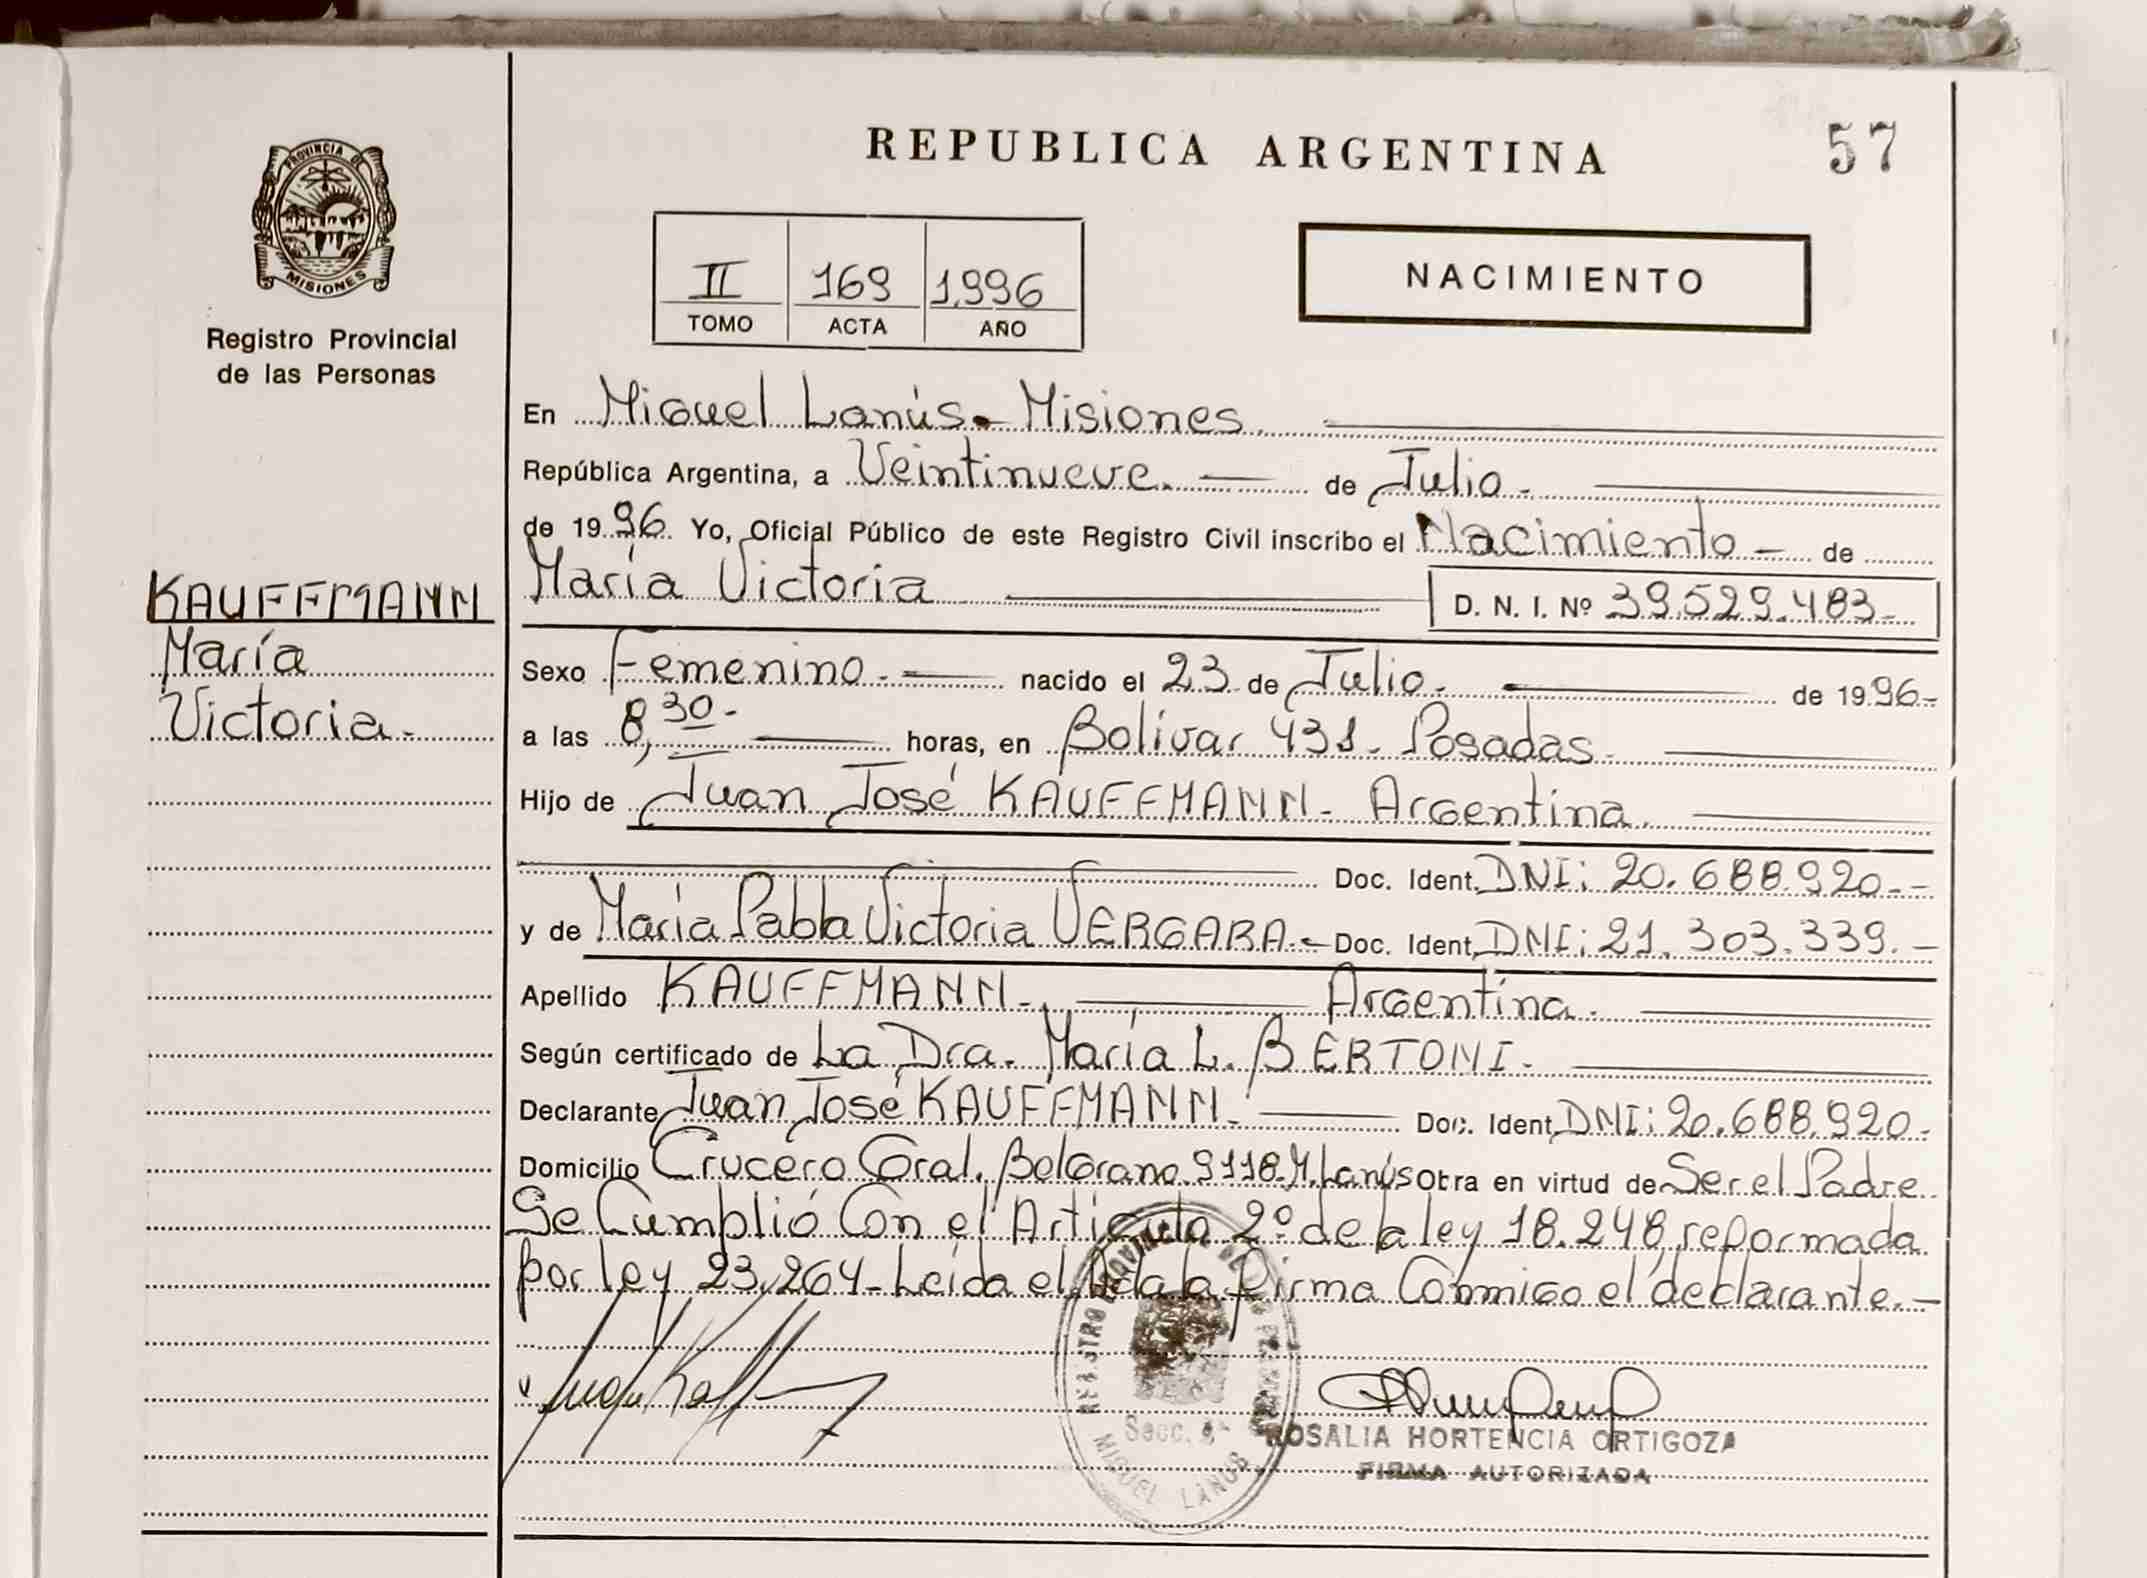 REPUBLICA ARGENTINA
57
PROVINCIA DE
MISIONES
Registro Provincial
de las Personas
II 169 1.996
TOMO ACTA AÑO
NACIMIENTO
KAUFFMANN
María
Victoria.-
En Miguel Lanús - Misiones.
República Argentina, a Veintinueve. — de Julio.-
de 1996. Yo, Oficial Público de este Registro Civil inscribo el Nacimiento - de
María Victoria — D. N. I. Nº 39.529.483.-
Sexo Femenino.- nacido el 23 de Julio.- de 1996.-
a las 8,30.- horas, en Bolívar 431. Posadas.-
Hijo de Juan José KAUFFMANN - Argentina.
Doc. Ident. DNI: 20.688.920.-
y de María Pabla Victoria VERGARA.- Doc. Ident. DNI: 21.303.339.-
Apellido KAUFFMANN.- Argentina.
Según certificado de La Dra. María L. BERTONI.-
Declarante Juan José KAUFFMANN.- Doc. Ident. DNI: 20.688.920.-
Domicilio Crucero Gral. Belgrano. 9118. M. Lanús Obra en virtud de Ser el Padre
Se Cumplió Con el Artículo 2º de la ley 18.248, reformada
por ley 23.264 - Leída el Acta la firma Conmigo el declarante.-
REGISTRO PROVINCIAL DE LAS PERSONAS
Secc.
MIGUEL LANUS
ROSALIA HORTENCIA ORTIGOZA
FIRMA AUTORIZADA